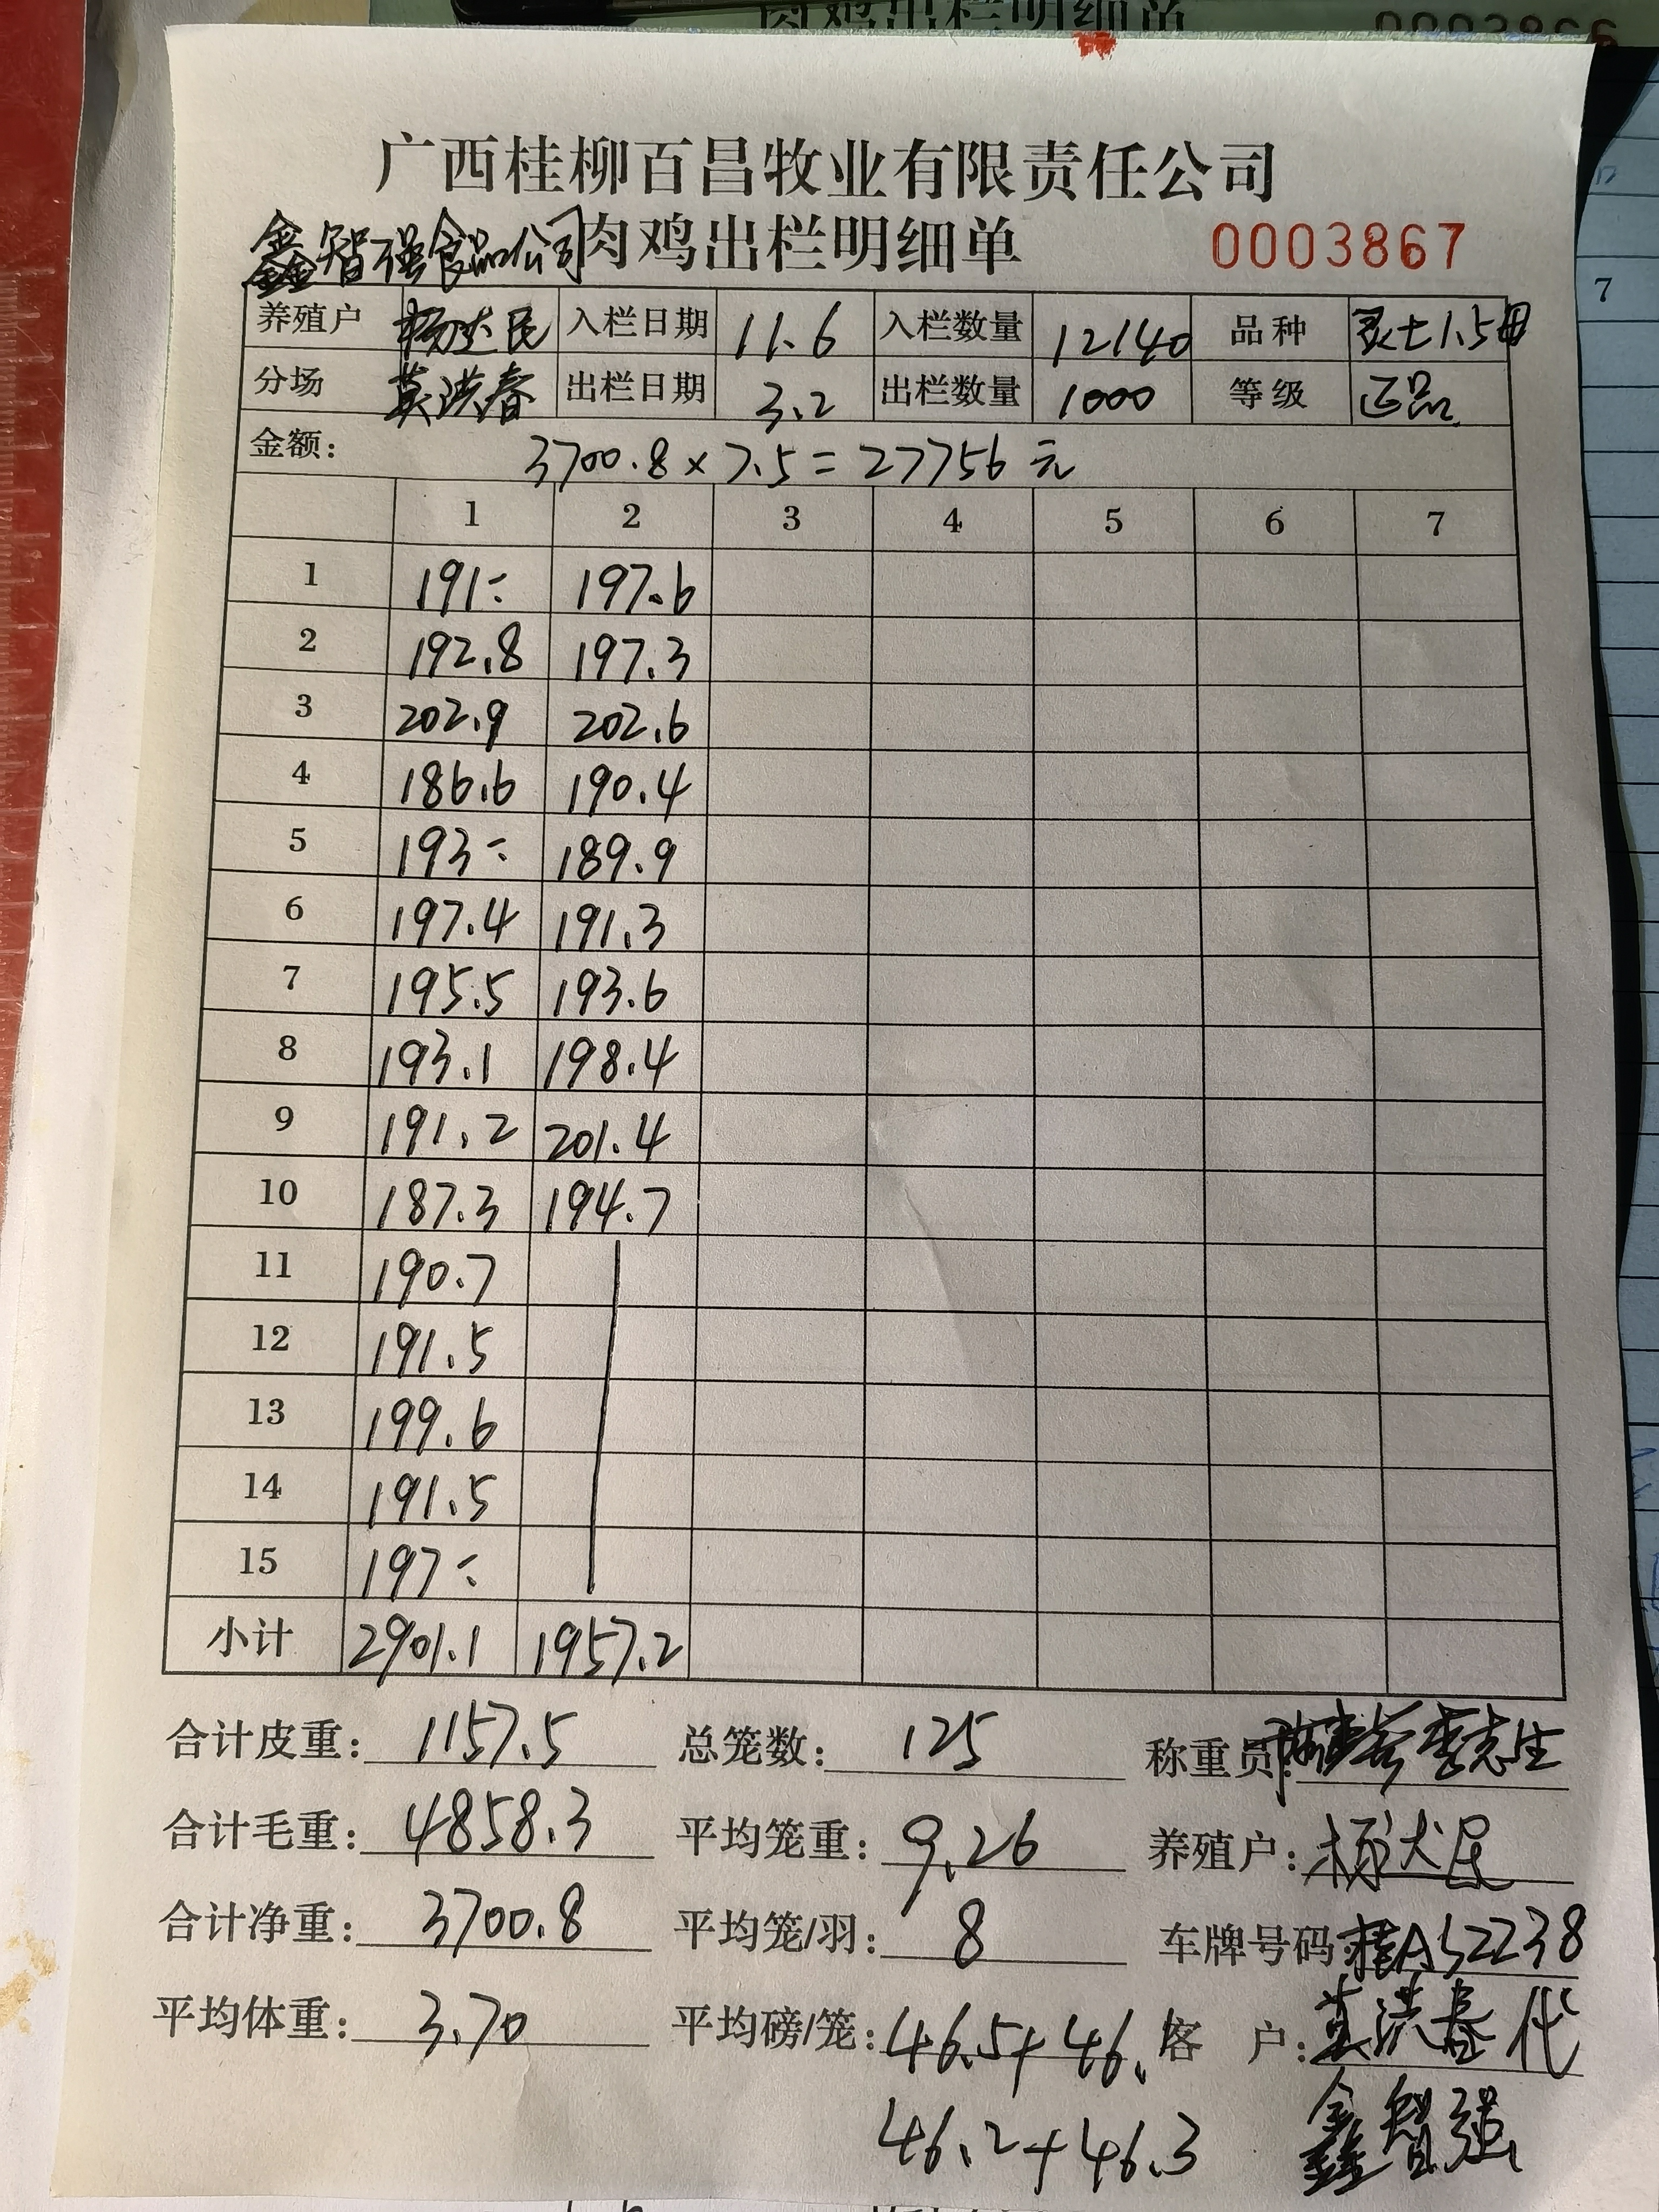 肉鸡出栏明细单 0003866
广西桂柳百昌牧业有限责任公司
鑫智强食品公司 肉鸡出栏明细单 0003867
养殖户 杨达民 入栏日期 11.6 入栏数量 12140 品种 灵士1.5母
分场 莫洪春 出栏日期 3.2 出栏数量 1000 等级 正品
金额: 3700.8×7.5=27756元
1 2 3 4 5 6 7
1 191÷ 197.6
2 192.8 197.3
3 202.9 202.6
4 186.6 190.4
5 193÷ 189.9
6 197.4 191.3
7 195.5 193.6
8 193.1 198.4
9 191.2 201.4
10 187.3 194.7
11 190.7
12 191.5
13 199.6
14 191.5
15 197÷
小计 2901.1 1957.2
合计皮重: 1157.5 总笼数: 125 称重员: 李志生
合计毛重: 4858.3 平均笼重: 9.26 养殖户: 杨达民
合计净重: 3700.8 平均笼/羽: 8 车牌号码: 桂A52238
平均体重: 3.70 平均磅/笼: 46.5+46. 客 户: 莫洪春代
46.2+46.3 鑫智强